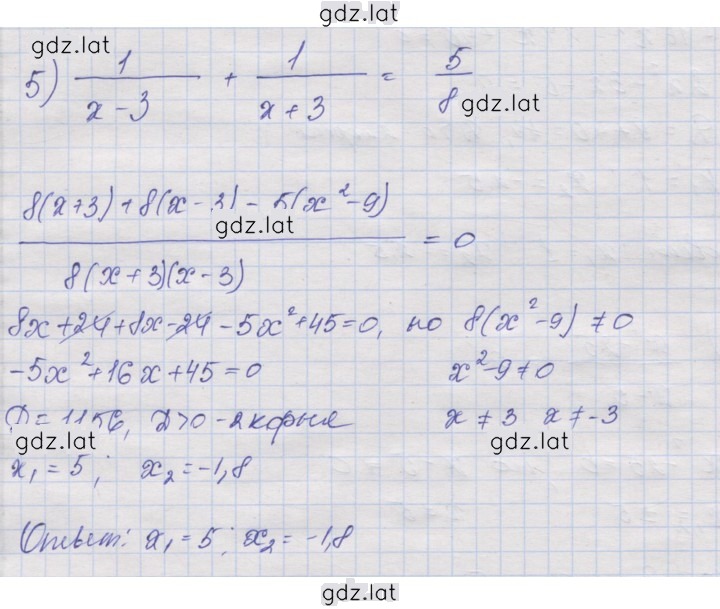 gdz.lat
gdz.lat
5) 1/(x-3) + 1/(x+3) = 5/8
gdz.lat
(8(x+3)+8(x-3)-5(x²-9))/(8(x+3)(x-3)) = 0
gdz.lat
8x+24+8x-24-5x²+45=0, но 8(x²-9)≠0
-5x²+16x+45=0 x²-9≠0
D=1156, D>0-2 корня x≠3 x≠-3
gdz.lat gdz.lat
x₁=5; x₂=-1,8
Ответ: x₁=5; x₂=-1,8
gdz.lat